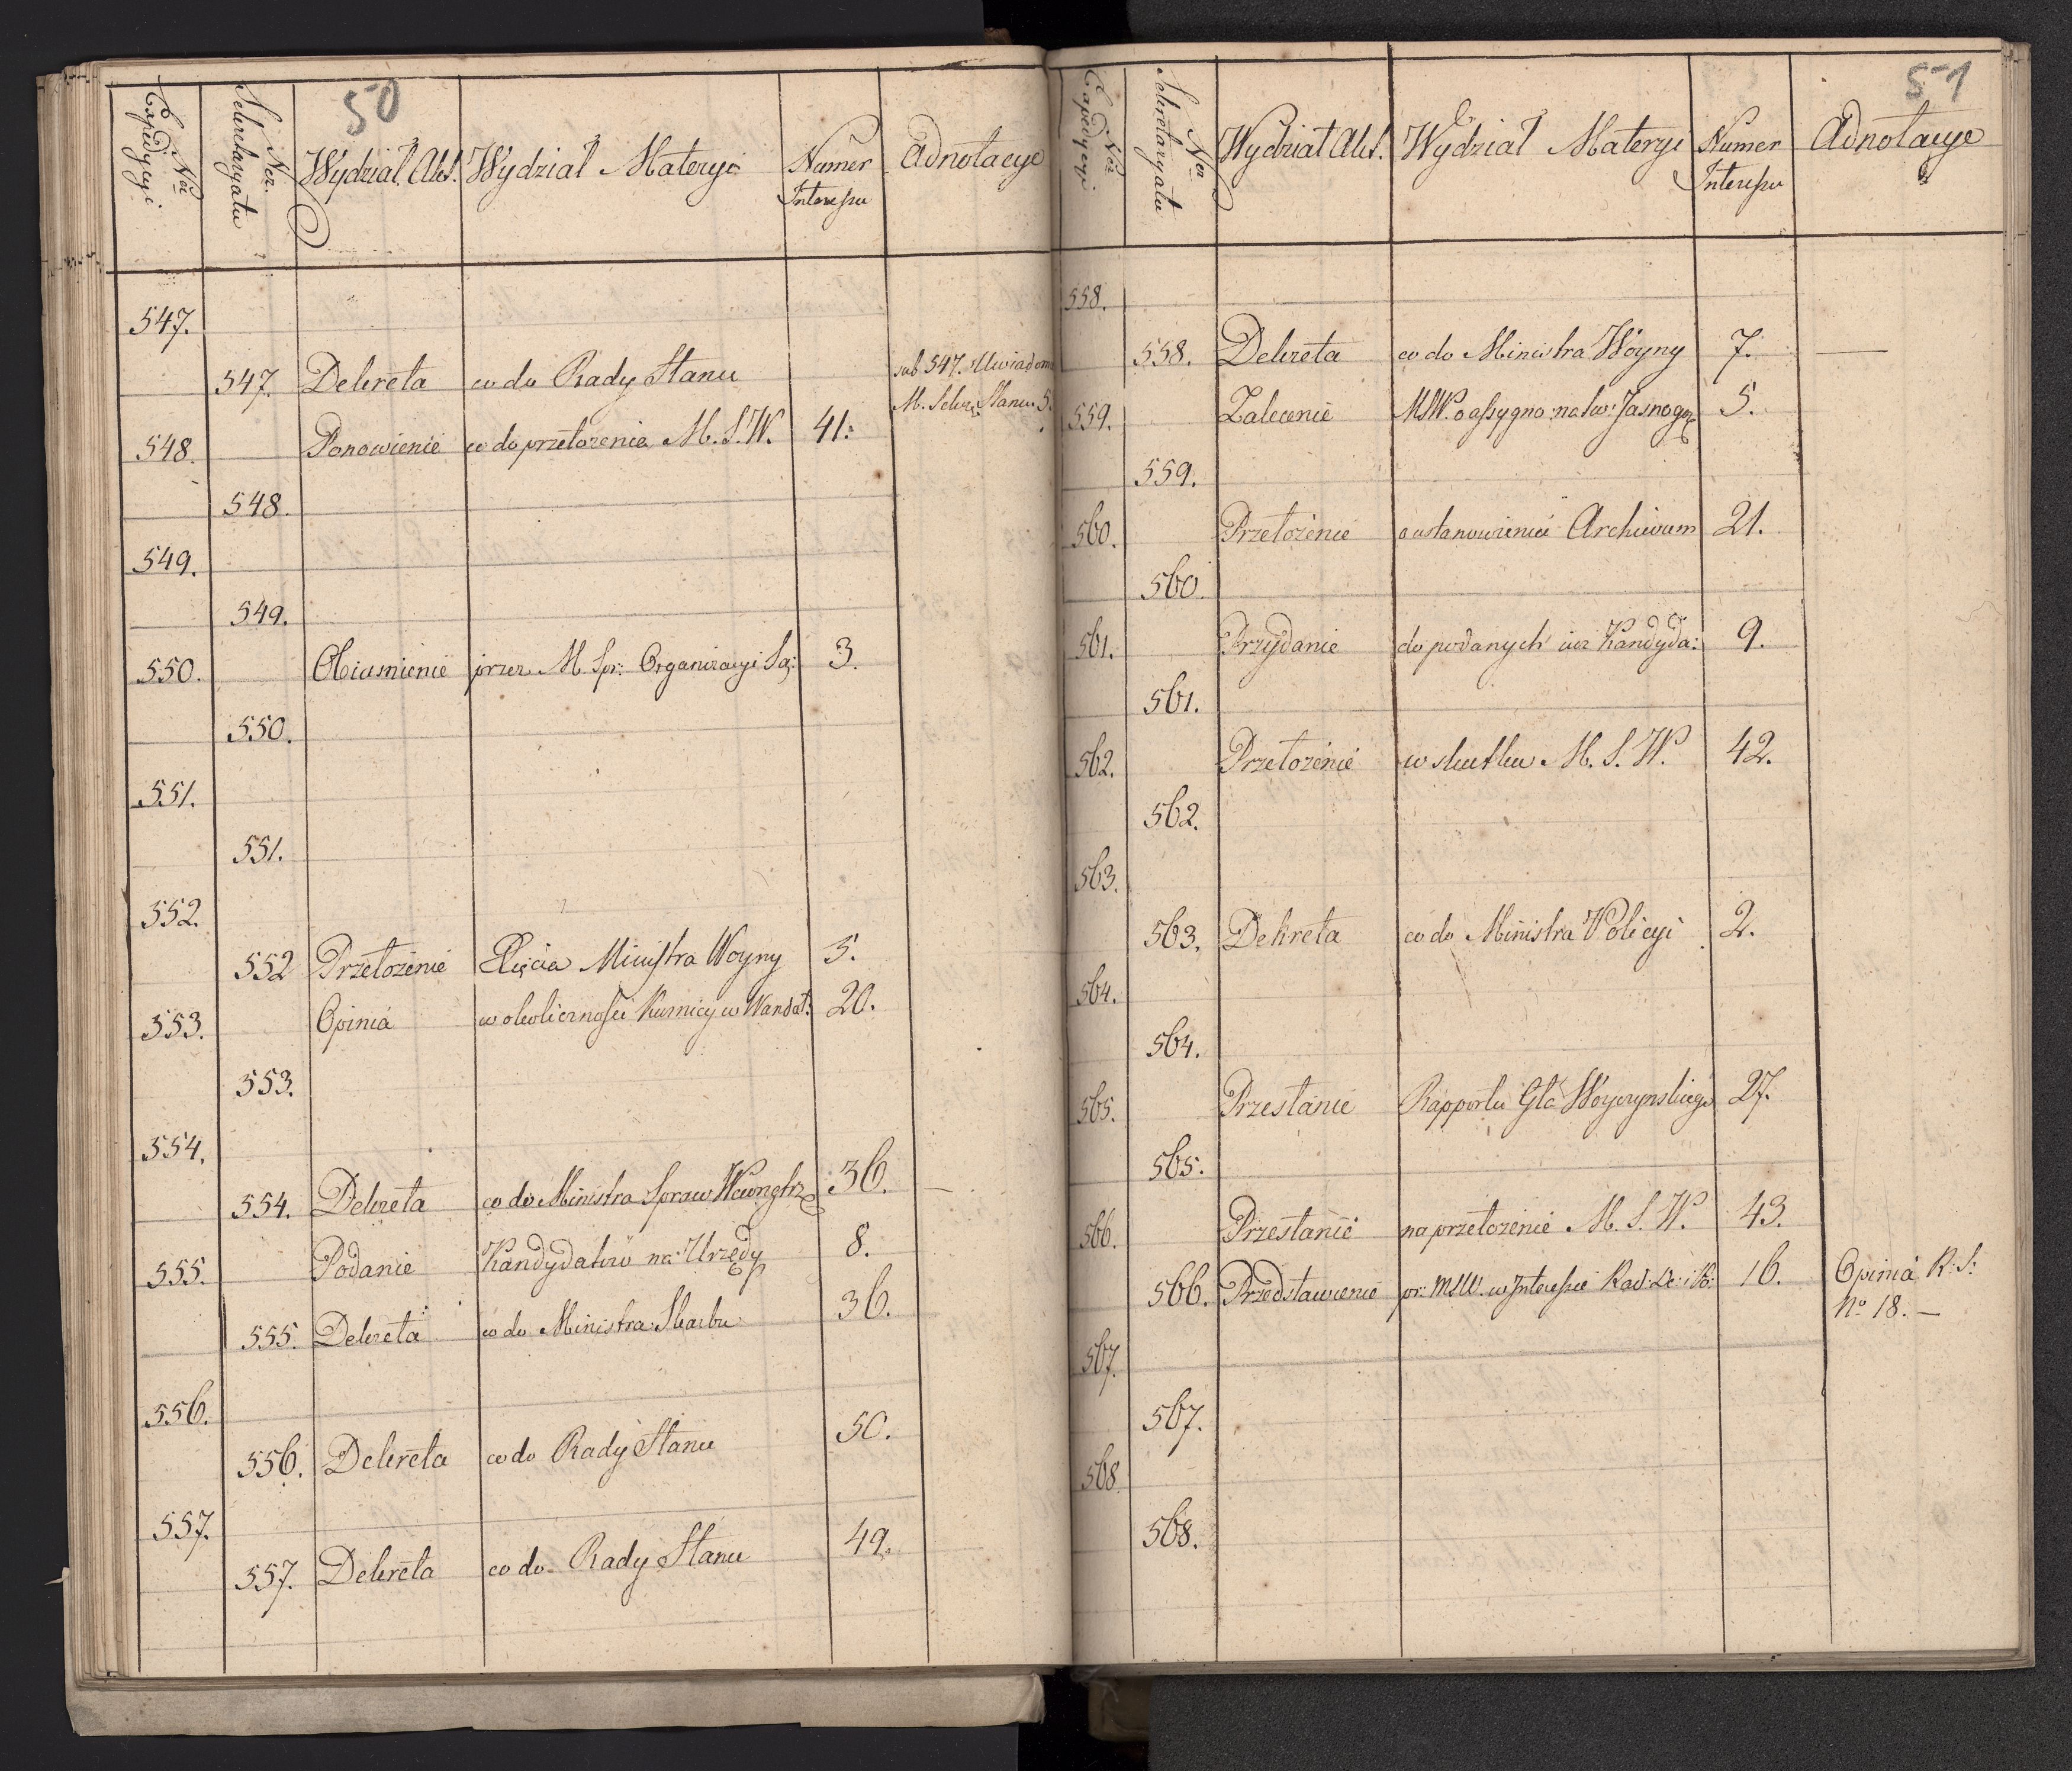 50
Nra Expedycyi Ner. Sekretaryatu Wydział Akt. Wydział Materyi Numer Interessu Adnotacye
547.
547. Dekreta co do Rady Stanu sub 547. Uwiadom
M. Sekr. Stanu 5.
548. Ponowienie co do przełożenia M. S. W. 41.
548.
549.
549.
550. Obiasnienie przez M. Spr: Organizacyi Są: 3.
550.
551.
551.
552.
552 Przełożenie Xięcia Ministra Woyny 5.
553. Opinia w okoliczności Kusnicy w Wandat: 20.
553.
554.
554. Dekreta co do Ministra Spraw Wewnętrz 36.
555. Podanie Kandydatów na Urzędy 8.
555. Dekreta co do Ministra Skarbu 36.
556.
556. Dekreta co do Rady Stanu 50.
557.
557. Dekreta co do Rady Stanu 49.
51
Nra Expedycyi Nra Sekretaryatu Wydział Akt. Wydział Materyi Numer Interessu Adnotacye
558.
558. Dekreta co do Ministra Woyny 7. —
559. Zalecenie MSW. o assygno: na tw: Jasnogo 5.
559.
560. Przełożenie o ustanowienia Archiwum 21.
560.
561. Przydanie do podanych iuz Kandyda: 9.
561.
562. Przełożenie w skutku M. S. W. 42.
562.
563.
563. Dekreta co do Ministra Policyi 2.
564.
564.
565. Przesłanie Rapportu Gła Woyczynskiego 27.
565.
566. Przesłanie na przełożenie M. S. W. 43.
566. Przedstawienie pr: MSW. w Interessie Rad: De: i K: 16. Opinia R: S:
No 18. —
567.
567.
568.
568.